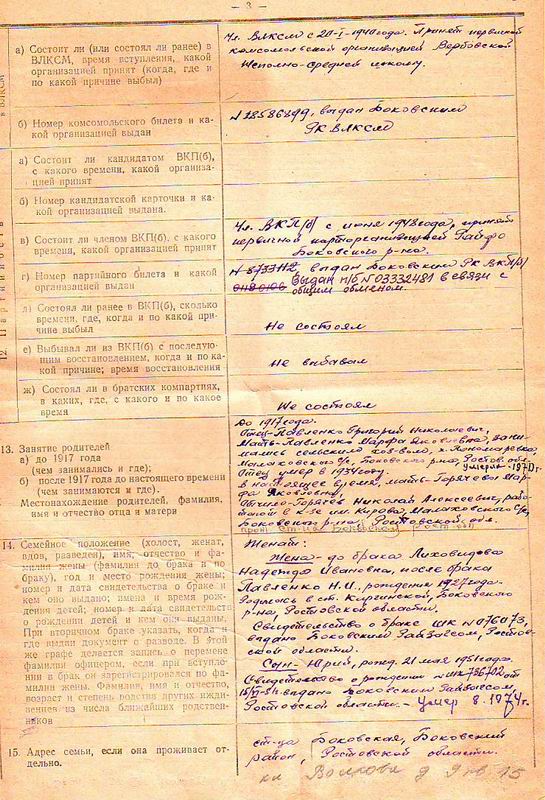 — 3 —
в ВЛКСМ
а) Состоит ли (или состоял ли ранее) в
ВЛКСМ, время вступления, какой
организацией принят (когда, где и
по какой причине выбыл)
Чл. ВЛКСМ с 20-I-1940года. Принят первичной
комсомольской организацией Вербовской
Неполно-средней школы.
б) Номер комсомольского билета и ка-
кой организацией выдан
N 18586899, выдан Боковским
РК ВЛКСМ
12. Партийность
а) Состоит ли кандидатом ВКП(б),
с какого времени, какой организа-
цией принят
б) Номер кандидатской карточки и ка-
кой организацией выдана.
в) Состоит ли членом ВКП(б), с какого
времени, какой организацией принят
Чл. ВКП(б) с июня 1948года, принят
первичной парторганизацией Райфо
Боковского р-на.
г) Номер партийного билета и какой
организацией выдан
N 8733112 выдан Боковским РК ВКП(б)
Выдан п/б N 03332481 в связи с
общим обменом.
д) Состоял ли ранее в ВКП(б), сколько
времени, где, когда и по какой при-
чине выбыл
Не состоял
е) Выбывал ли из ВКП(б) с последую-
щим восстановлением, когда и по ка-
кой причине; время восстановления
Не выбывал
ж) Состоял ли в братских компартиях,
в каких, где, с какого и по какое
время
Не состоял
13. Занятие родителей
а) до 1917 года
(чем занимались и где);
б) после 1917 года до настоящего времени
(чем занимаются и где).
Местонахождение родителей, фамилия,
имя и отчество отца и матери
До 1917 года.
Отец-Павленко Григорий Николаевич,
Мать-Павленко Марфа Яковлевна, зани-
мались сельским хоз-вом, х. Пономаревка,
Малаховского с/с, Боковского р-на, Ростов. обл.
Отец умер в 1934году. умерла-1970г.
В настоящее время, мать-Горячева Мар-
фа Яковлевна,
Отчим-Горячев Николай Алексеевич, рабо-
тают в к-зе им. Кирова, Малаховского С/с,
Боковского р-на Ростовской обл.
14. Семейное положение (холост, женат,
вдов, разведен), имя, отчество и фа-
милия жены (фамилия до брака и по
браку), год и место рождения жены;
номер и дата свидетельства о браке и
кем оно выдано; имена и время рож-
дения детей; номер и дата свидетельств
о рождении детей и кем они выданы.
При вторичном браке указать, когда и
где выдан документ о разводе. В этой
же графе делается запись о перемене
фамилии офицером, если при вступле-
нии в брак он зарегистрировался по фа-
милии жены. Фамилия, имя и отчество,
возраст и степень родства других ижди-
венцев из числа ближайших родствен-
ников
Женат:
Жена-до брака Лиховидова
Надежда Ивановна, после брака
Павленко Н.И., рождения 1927года.
Родилась в ст. Каргинской, Боковского
р-на, Ростовской области.
Свидетельство о браке ШК N 076073,
выдано Боковским РайЗАГСом, Ростов-
ской области.
Сын-Юрий, рожд. 21 мая 1951года.
Свидетельство о рождении N 736702 от
выдано Боковским РайЗАГСом,
Ростовской области.- Умер 8.1974г.
15. Адрес семьи, если она проживает от-
дельно.
ст-ца Боковская, Боковский
район, Ростовской области.
д 9 кв. 15